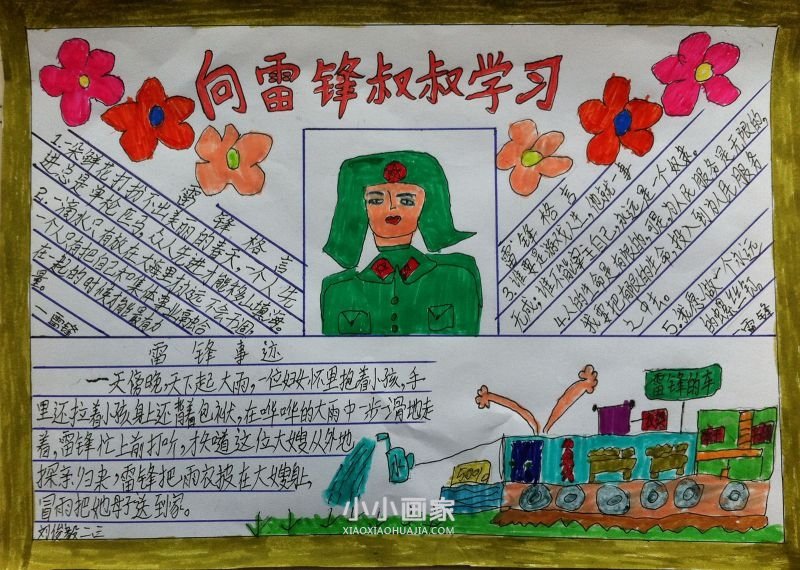 向雷锋叔叔学习
雷锋格言
1.一朵鲜花打扮不出美丽的春天,一个人先
进总是单枪匹马,众人先进才能移山填海。
2.一滴水只有放在大海里才永远不会干涸,
一个人只有把自己和集体事业融合
在一起的时候才能最有力
量。
—雷锋
雷锋格言
3.谁要是游戏人生,他就一事
无成;谁不能掌主自己,永远是一个奴隶。
4.人的生命是有限的,可是,为人民服务是无限的,
我要把有限的生命,投入到为人民服务
之中去。
5.我愿做一个永远
的螺丝钉。
雷锋
雷锋事迹
一天傍晚,天下起大雨,一位妇女怀里抱着小孩,手
里还拉着小孩,身上还背着包袱,在哗哗的大雨中一步一滑地走
着,雷锋忙上前打听,才知道这位大嫂从外地
探亲归来,雷锋把雨衣披在大嫂身上,
冒雨把她母子送到家。
二三
雷锋的车
小小画家
XIAOXIAOHUAJIA.COM